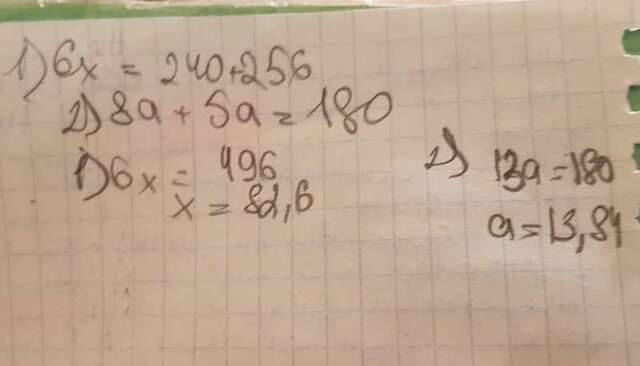 1) 6x = 240+256
2) 8a + 5a = 180
1) 6x = 496
x = 82,6
2) 13a = 180
a = 13,84